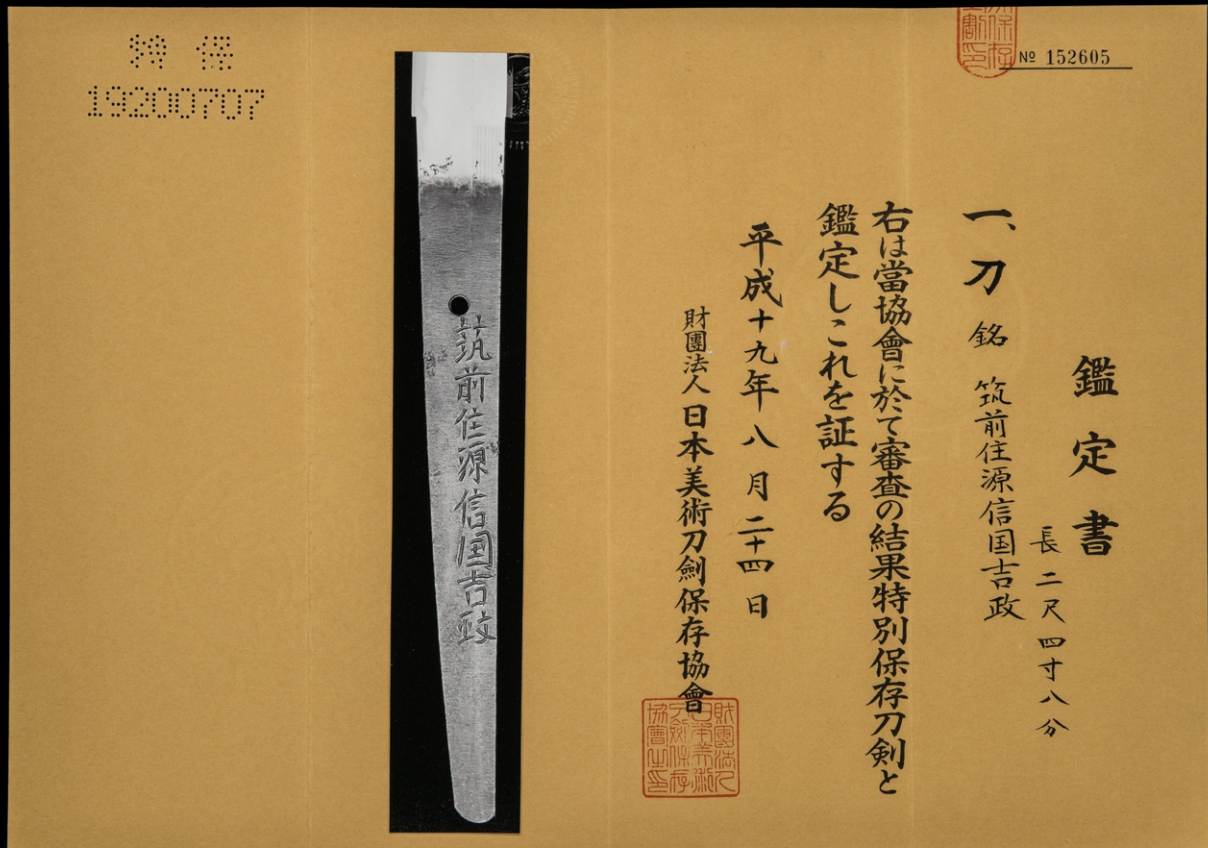 № 152605
鑑定書
一、刀 銘 筑前住源信国吉政
長二尺四寸八分
右は當協會に於て審査の結果特別保存刀剣と
鑑定しこれを証する
平成十九年八月二十四日
財團法人 日本美術刀劍保存協會
財團法人日本美術刀劍保存協會之印
筑前住源信国吉政
特保
19200707